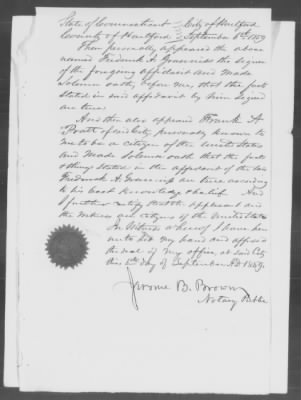 State of Connecticut City of Hartford
County of Hartford September 5th 1859
Then personally appeared the above
named Frederick A the signer
of the foregoing affidavit and made
Solemn oath, before me, that the facts
stated in said affidavit by him signed
are true.
And then also appeared Frank A
Pratt of said City, personally known to
me to be a citizen of the United States
and made Solemn oath that the facts
& things stated in the affidavit of the said
Frederick A are true according
to his best knowledge & belief. And
I further certify that the applicant and
the witness are citizens of the United States
In Witness whereof I have here
unto set my hand and affixed
the seal of my office, at said City
this 5th day of September A.D. 1859.
Jerome B. Brown
Notary Public